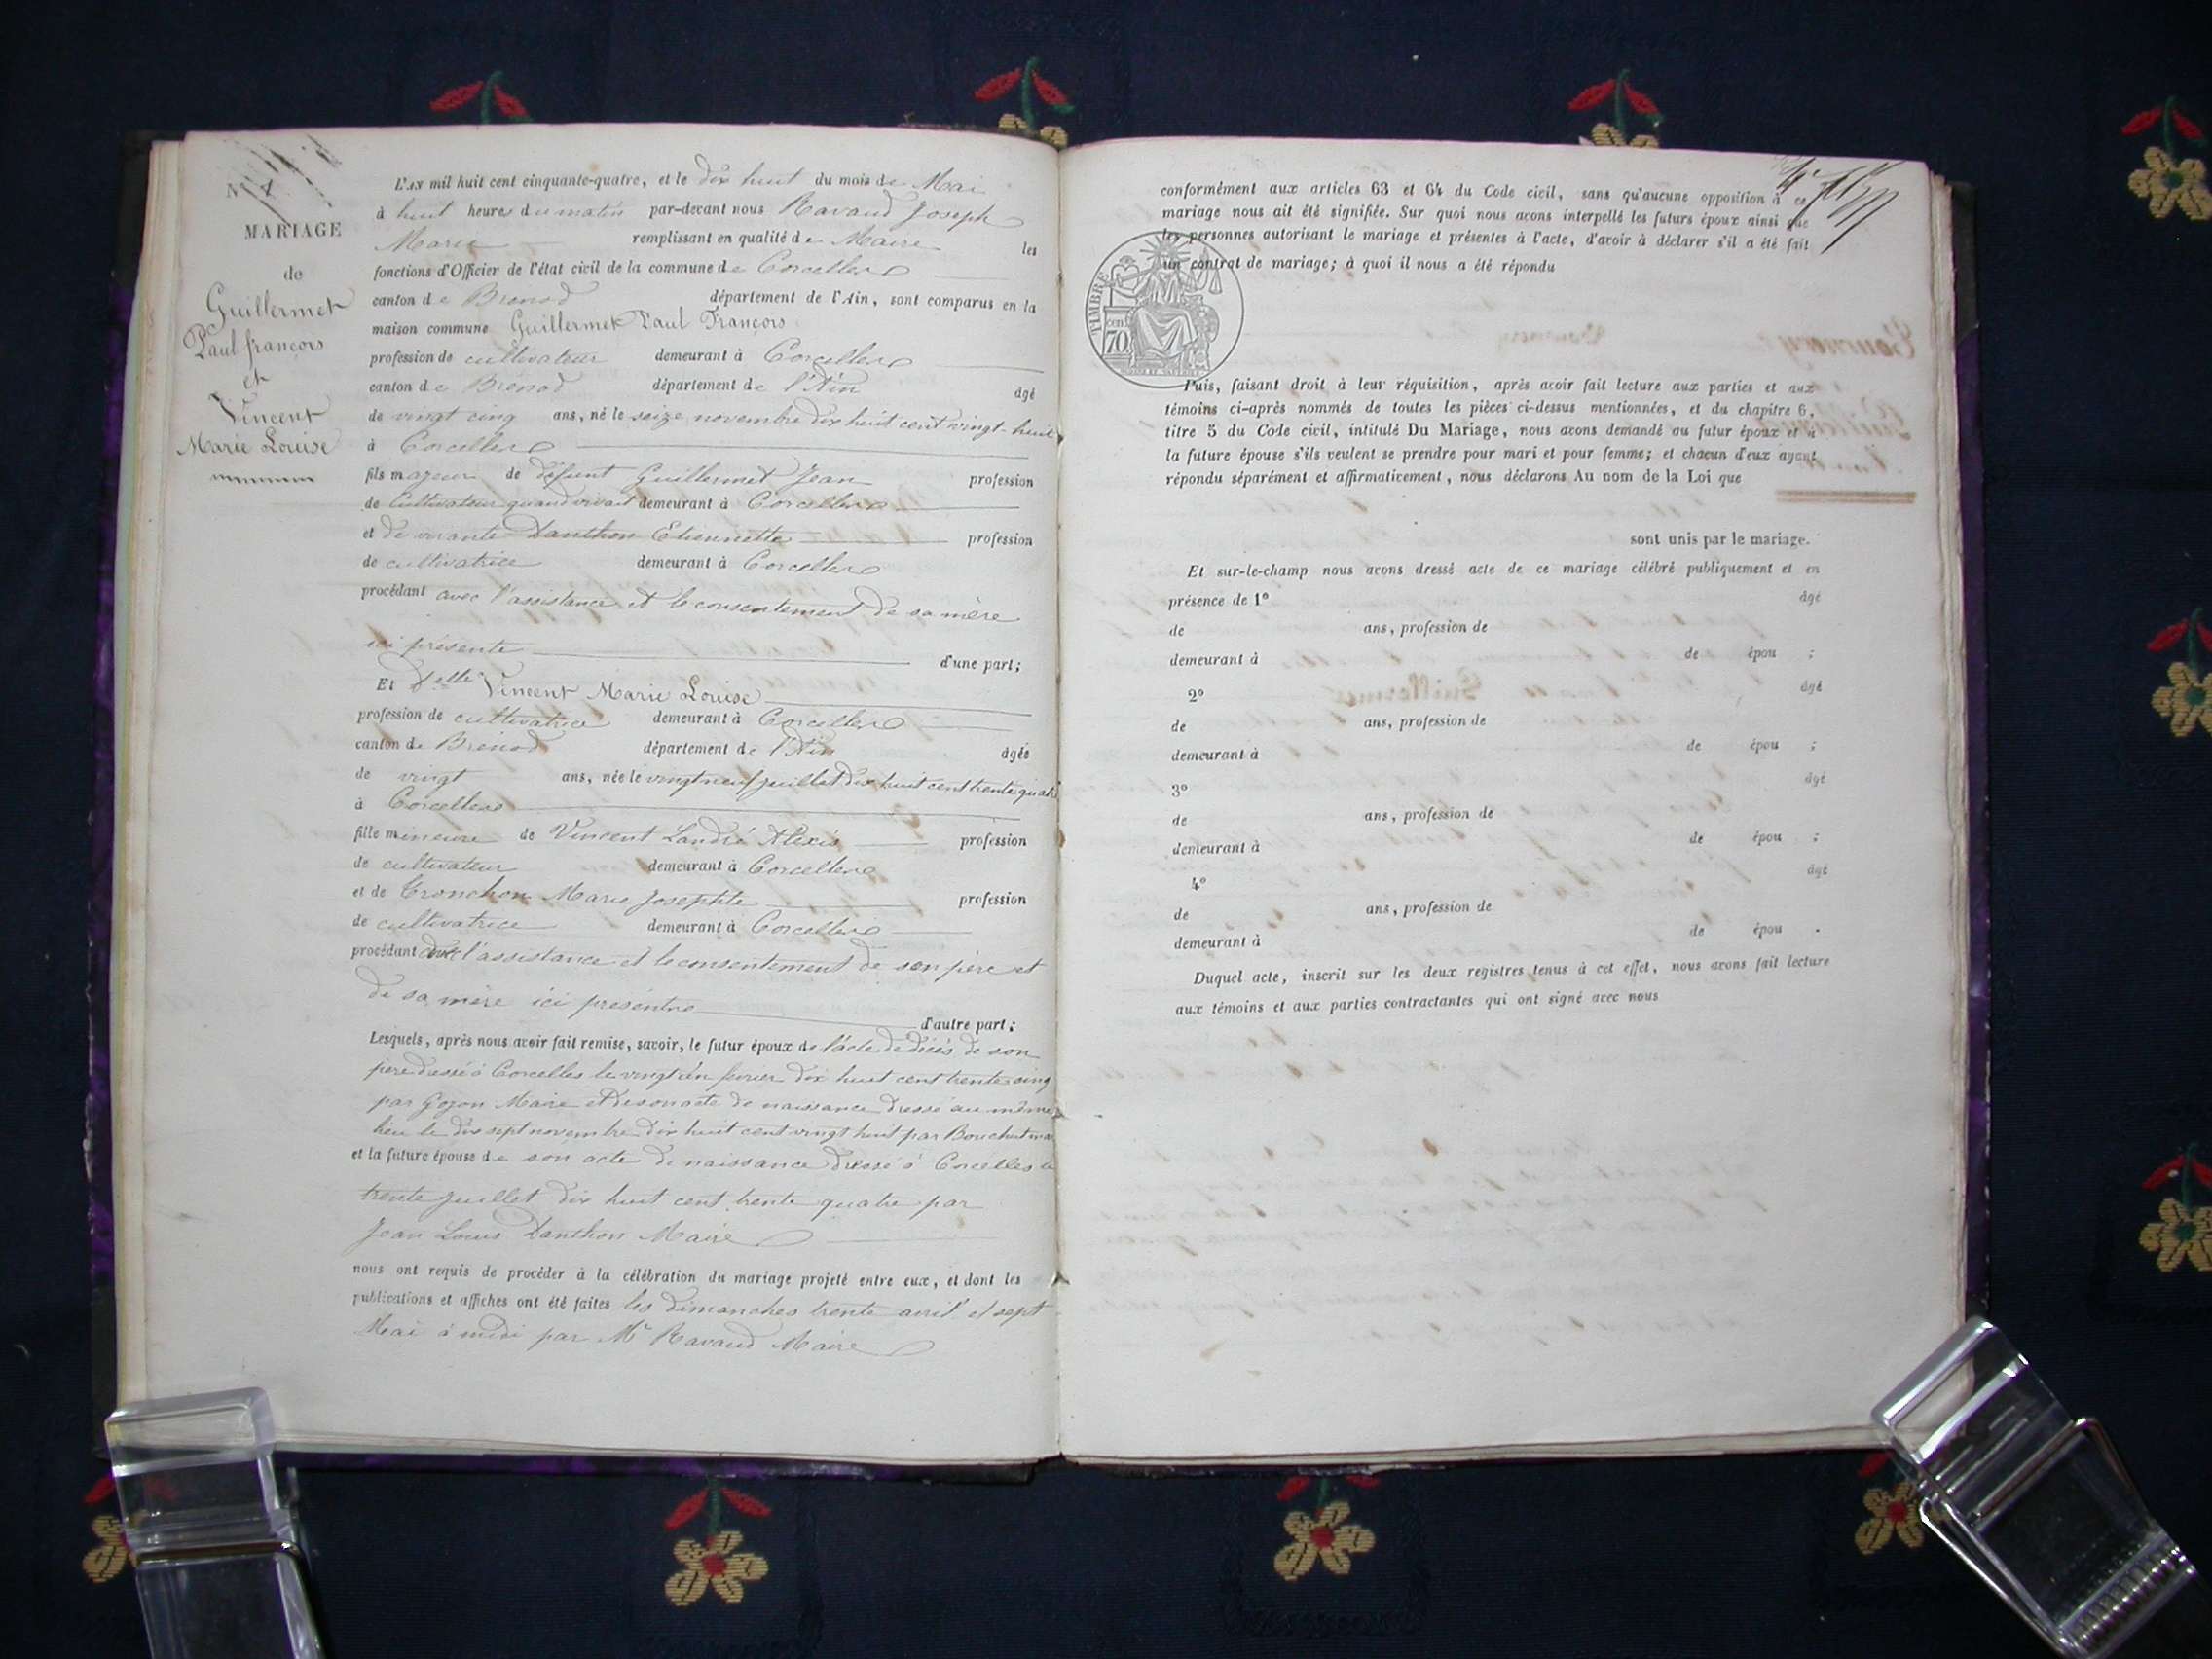 N 4
MARIAGE
de
Guillermet
Paul françois
et
Vincent
Marie Louise
L'AN mil huit cent cinquante-quatre, et le dix huit du mois de Mai
à huit heures du matin par-devant nous Ravaud Joseph
Marie remplissant en qualité de Maire les
fonctions d'Officier de l'état civil de la commune de Corcelles
canton de Brénod département de l'Ain, sont comparus en la
maison commune Guillermet Paul François
profession de cultivateur demeurant à Corcelles
canton de Brénod département de l'Ain âgé
de vingt cinq ans, né le seize novembre dix huit cent vingt-huit
à Corcelles
fils majeur de défunt Guillermet Jean profession
de Cultivateur quand vivait demeurant à Corcelles
et de vivante Danthon Etiennette profession
de cultivatrice demeurant à Corcelles
procédant avec l'assistance et le consentement de sa mère
ici présente d'une part;
Et Delle Vincent Marie Louise
profession de cultivatrice demeurant à Corcelles
canton de Brénod département de l'Ain âgée
de vingt ans, née le vingt neuf juillet dix huit cent trente quatre
à Corcelles
fille mineure de Vincent Landré Alexis profession
de cultivateur demeurant à Corcelles
et de Tronchon Marie Josephte profession
de cultivatrice demeurant à Corcelles
procédant avec l'assistance et le consentement de son père et
de sa mère ici présents d'autre part;
Lesquels, après nous avoir fait remise, savoir, le futur époux de l'acte de décès de son
père dressé à Corcelles le vingt un fevrier dix huit cent trente cinq
par Gojon Maire et de son acte de naissance dressé au même
lieu le dix sept novembre dix huit cent vingt huit par Bouchet
et la future épouse de son acte de naissance dressé à Corcelles le
trente juillet dix huit cent trente quatre par
Jean Louis Danthon Maire
nous ont requis de procéder à la célébration du mariage projeté entre eux, et dont les
publications et affiches ont été faites les dimanches trente avril et sept
Mai à midi par Mr Ravaud Maire
conformément aux articles 63 et 64 du Code civil, sans qu'aucune opposition à ce
mariage nous ait été signifiée. Sur quoi nous avons interpellé les futurs époux ainsi que
les personnes autorisant le mariage et présentes à l'acte, d'avoir à déclarer s'il a été fait
un contrat de mariage; à quoi il nous a été répondu
TIMBRE
cen
70
Puis, faisant droit à leur réquisition, après avoir fait lecture aux parties et aux
témoins ci-après nommés de toutes les pièces ci-dessus mentionnées, et du chapitre 6,
titre 5 du Code civil, intitulé Du Mariage, nous avons demandé au futur époux et à
la future épouse s'ils veulent se prendre pour mari et pour femme; et chacun d'eux ayant
répondu séparément et affirmativement, nous déclarons Au nom de la Loi que
sont unis par le mariage.
Et sur-le-champ nous avons dressé acte de ce mariage célébré publiquement et en
présence de 1° âgé
de ans, profession de
demeurant à de épou ;
2° âgé
de ans, profession de
demeurant à de épou ;
3° âgé
de ans, profession de
demeurant à de épou ;
4° âgé
de ans, profession de
demeurant à de épou .
Duquel acte, inscrit sur les deux registres tenus à cet effet, nous avons fait lecture
aux témoins et aux parties contractantes qui ont signé avec nous